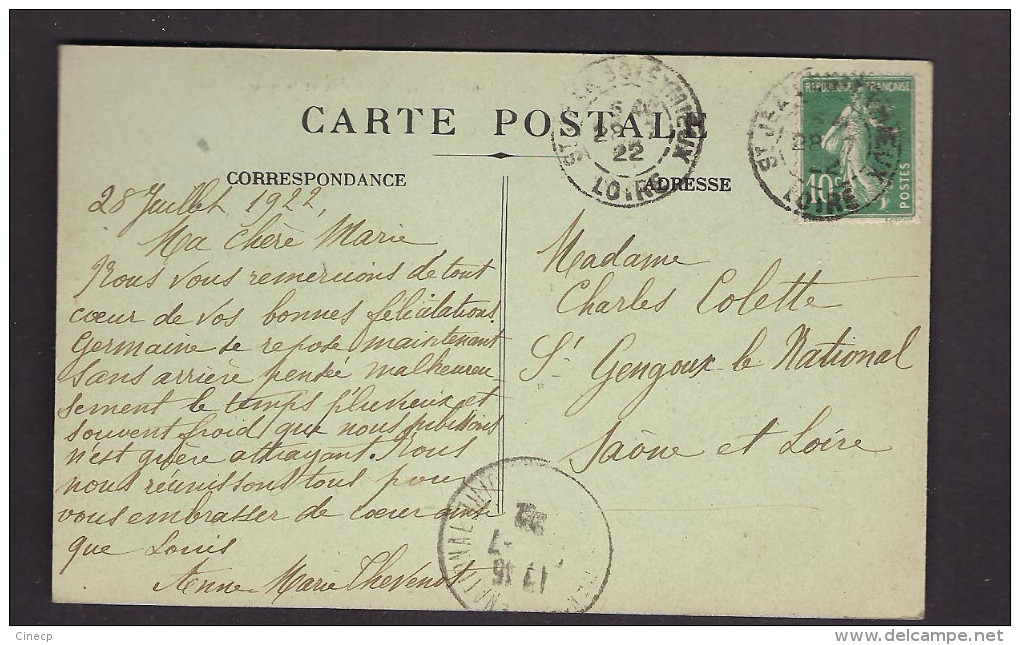 CARTE POSTALE
CORRESPONDANCE
28 Juillet 1922,
Ma Chère Marie
Nous vous remercions de tout
cœur de vos bonnes félicitations.
Germaine se repose maintenant
sans arrière pensée malheureu
sement le temps pluvieux et
souvent froid que nous subissons
n'est guère attrayant. Nous
nous réunissons tous pour
vous embrasser de cœur ainsi
que Louis
Anne Marie Thevenot
ADRESSE
Madame
Charles Colette
St Gengoux le National
Saône et Loire
REPUBLIQUE FRANÇAISE
10c
POSTES
28
22
LOIRE
28
LOIRE
NATIONAL
17 15
Cinecp
www.delcampe.net